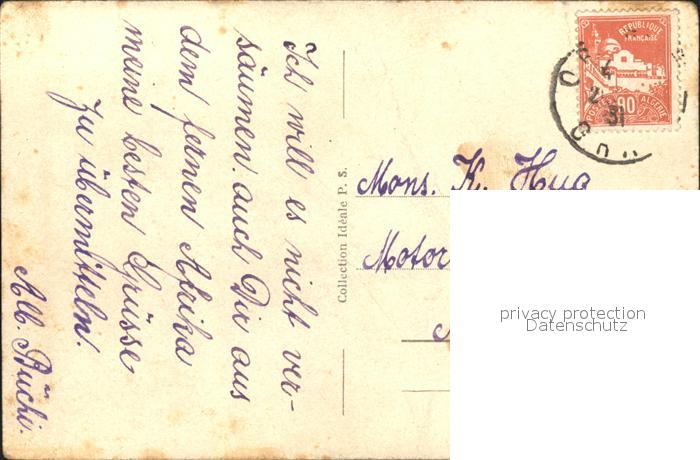 Ich will es nicht ver-
säumen auch Dir aus
dem fernen Afrika
meine besten Grüsse
zu übermitteln.
Alb. Büchi.
Collection Idéale P. S.
Mons. K. Hug
Motor
REPUBLIQUE
FRANÇAISE
POSTES 90 ALGERIE
31
privacy protection
Datenschutz